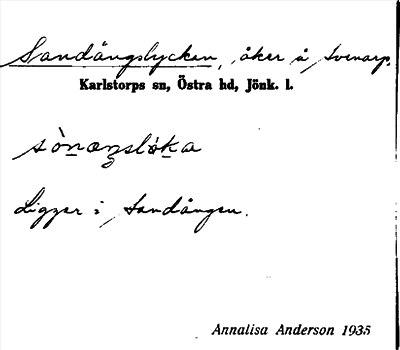 Sandängslyckan, åker å Svenarp.
Karlstorps sn, Östra hd, Jönk. l.
sònæŋsløka
Ligger i Sandängen.
Annalisa Anderson 1935